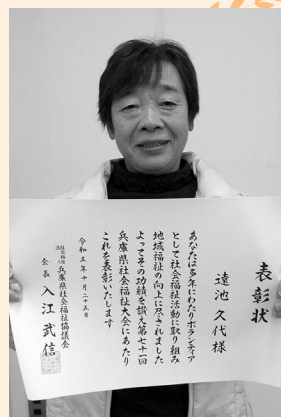 表彰状
遠池久代様
あなたは多年にわたりボランティア
として社会福祉活動に取り組み
地域福祉の向上に尽されました
よってその功績を讃え第七十一回
兵庫県社会福祉大会にあたり
これを表彰いたします
令和五年十月二十五日
社会福祉法人 兵庫県社会福祉協議会
会長 入江武信